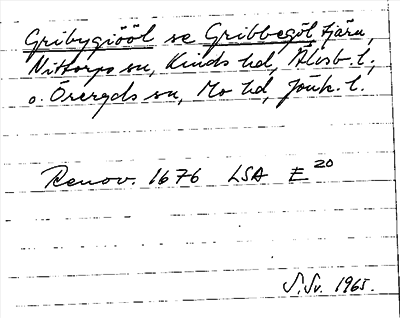 Gribygiööl se Gribbegöl tjärn,
Nittorps sn, Kinds hd, Älvsb. l.,
o. Öreryds sn, Mo hd, Jönk. l.
Renov. 1676 LSA E 20
S. Sv. 1965.